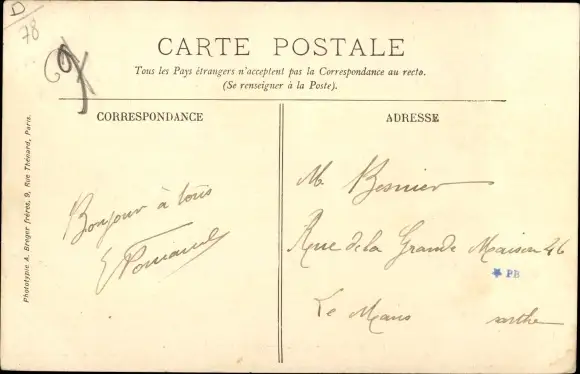 D
78
CARTE POSTALE
Tous les Pays étrangers n'acceptent pas la Correspondance au recto.
(Se renseigner à la Poste).
CORRESPONDANCE
Bonjour à tous
ADRESSE
M. Besnier
Rue de la Grande Maison 46
PB
Le Mans sarthe
Phototypie A. Breger frères, 9, Rue Thénard, Paris.